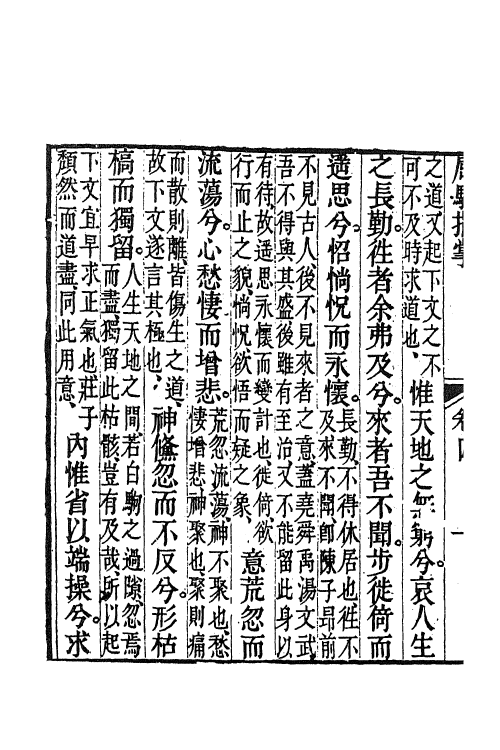 屈騷指掌 卷四 一
之道又起下文之不
可不及時求道也、
惟天地之無窮兮。哀人生
之長勤。徃者余弗及兮。來者吾不聞。步徙倚而
遥思兮。怊惝怳而永懷。
長勤、不得休居也徃不
及來不聞卽陳子昻前
不見古人後不見來者之意、蓋堯舜禹湯文武
吾不得與其盛後雖有至治、又不能留此身以
有待、故遥思永懷而變計也、徙倚、欲
行而止之貌、惝怳欲悟而疑之象、
意荒忽而
流蕩兮。心愁悽而增悲。
荒忽流蕩、神不聚也、愁
悽增悲、神聚也、聚則痛
而散則離、皆傷生之道、
故下文遂言其極也、
神儵忽而不反兮。形枯
槁而獨留。
人生天地之間、若白駒之過隙、忽焉
而盡、獨留此枯骸、豈有及哉、所以起
下文宜早求正氣也莊子
頹然而道盡、同此用意、
內惟省以端操兮。求